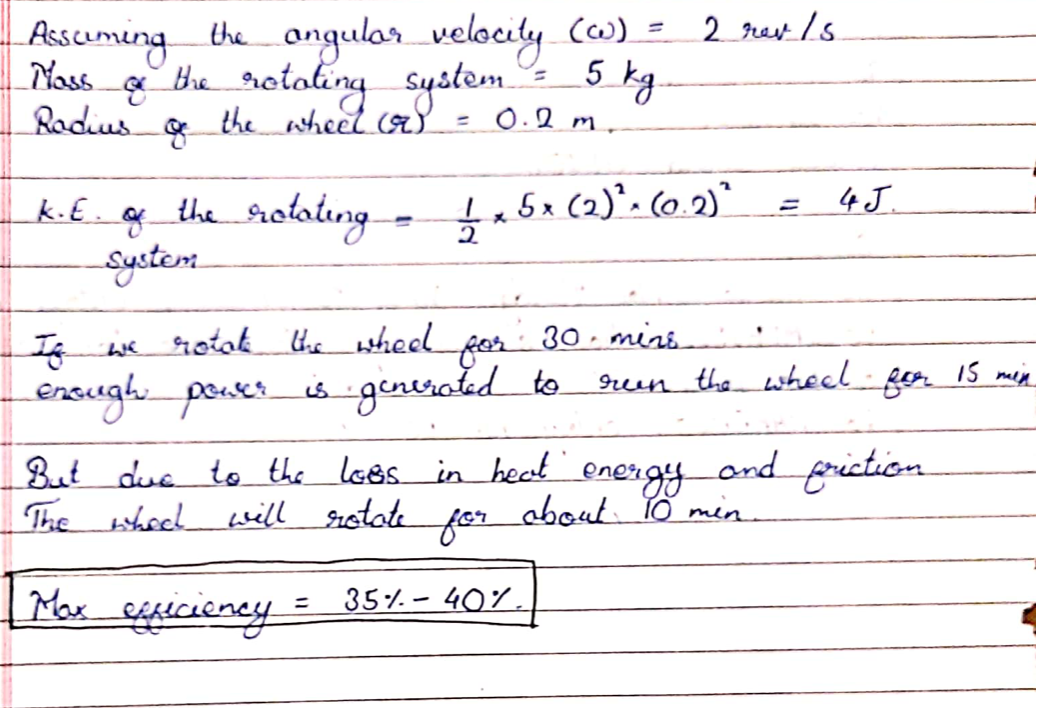 Assuming the angular velocity (ω) = 2 rev/s
Mass of the rotating system = 5 kg
Radius of the wheel (r) = 0.2 m.
K.E. of the rotating = 1/2 × 5 × (2)² × (0.2)² = 4 J.
system
If we rotate the wheel for 30 mins
enough power is generated to run the wheel for 15 min
But due to the loss in heat energy and friction
The wheel will rotate for about 10 min.
Max efficiency = 35% - 40%.